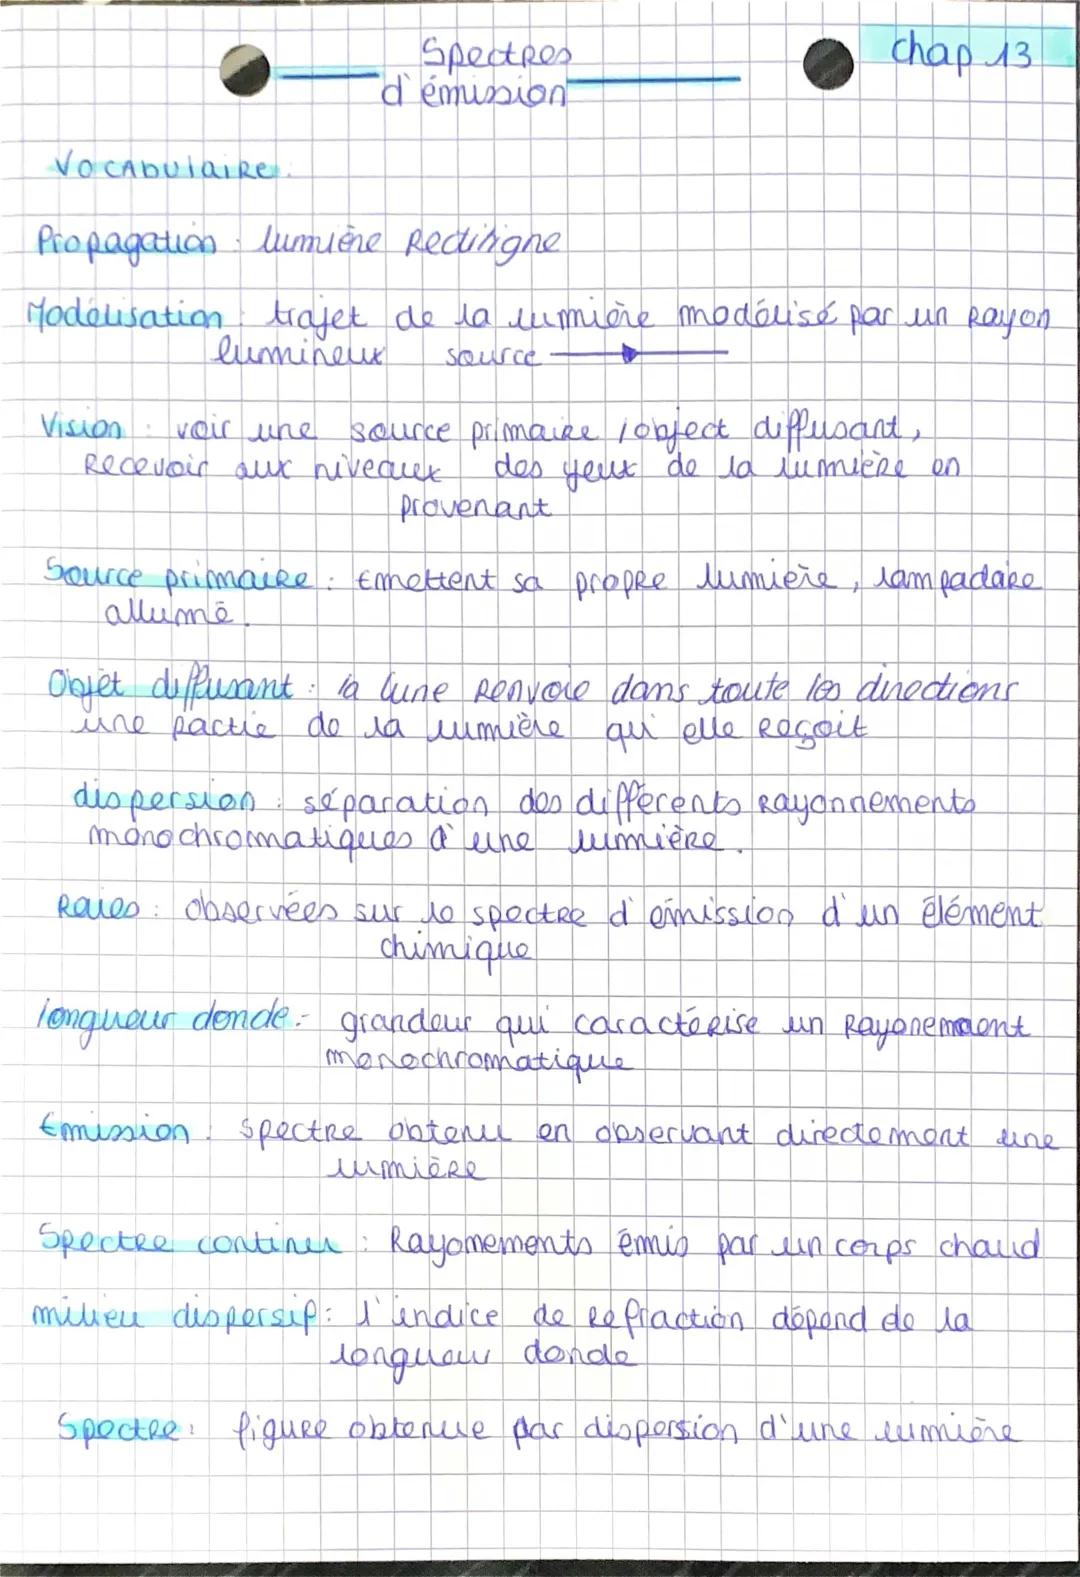 Spectres
d'émission
chap 13
Vocabulaire.
Propagation : lumière Rectiligne
Modélisation : trajet de la lumière modélisé par un Rayon
lumineux source
Vision : voir une source primaire / object diffusant,
Recevoir aux niveaux des yeux de la lumière en
provenant
Source primaire : Emettent sa propre lumière, lampadaire
allumé.
Objet diffusant : la lune Renvoie dans toute les directions
une partie de la lumière qui elle Reçoit
dispersion : séparation des différents Rayonnements
monochromatiques d'une lumière.
Raies : observées sur le spectre d'émission d'un élément
chimique
longueur donde : grandeur qui caractérise un Rayonement
monochromatique
Emission : Spectre obtenu en observant directement une
lumière
Spectre continu : Rayonnements émis par un corps chaud
milieu dispersif : l'indice de refraction dépend de la
longueur donde
Spectre : figure obtenue par dispersion d'une lumière